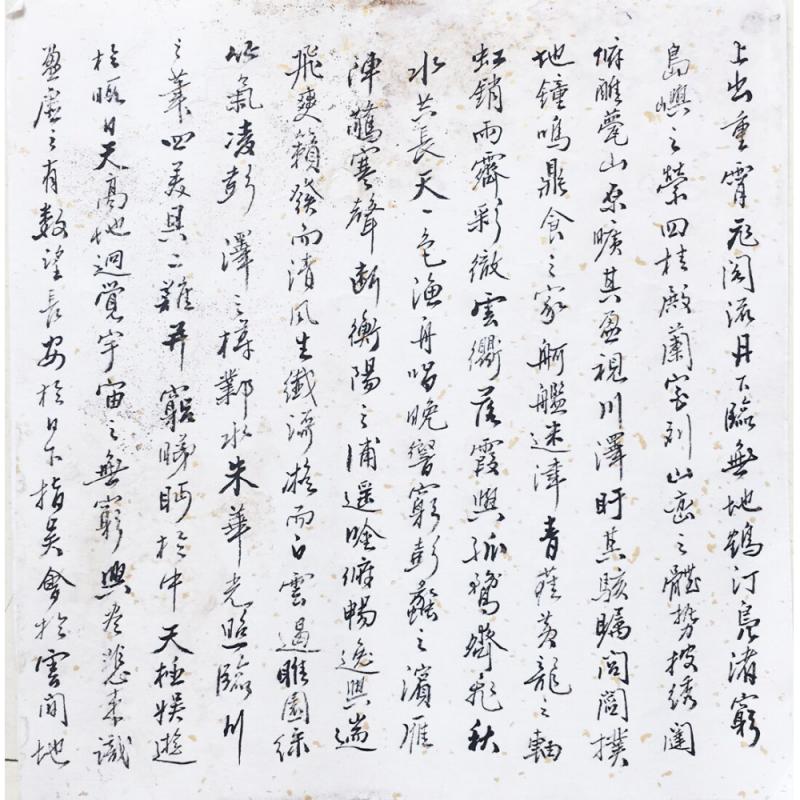 上出重霄飛阁流丹下臨無地鶴汀鳧渚窮
島嶼之縈回桂殿蘭宮列山巒之體勢披绣闥
俯雕甍山原曠其盈視川澤盱其駭矚閭閻撲
地鐘鳴鼎食之家舸艦迷津青雀黃龍之軸
虹銷雨霽彩徹雲衢落霞與孤鶩齊飛秋
水共長天一色漁舟唱晚響窮彭蠡之濱雁
陣驚寒聲斷衡陽之浦遥吟俯暢逸興遄
飛爽籟發而清風生纖歌凝而白雲遏睢園綠
竹氣凌彭澤之樽鄴水朱華光照臨川
之筆四美具二難并窮睇眄於中天極娛遊
於暇日天高地迥覺宇宙之無窮興盡悲來識
盈虛之有數望長安於日下指吳會於雲間地